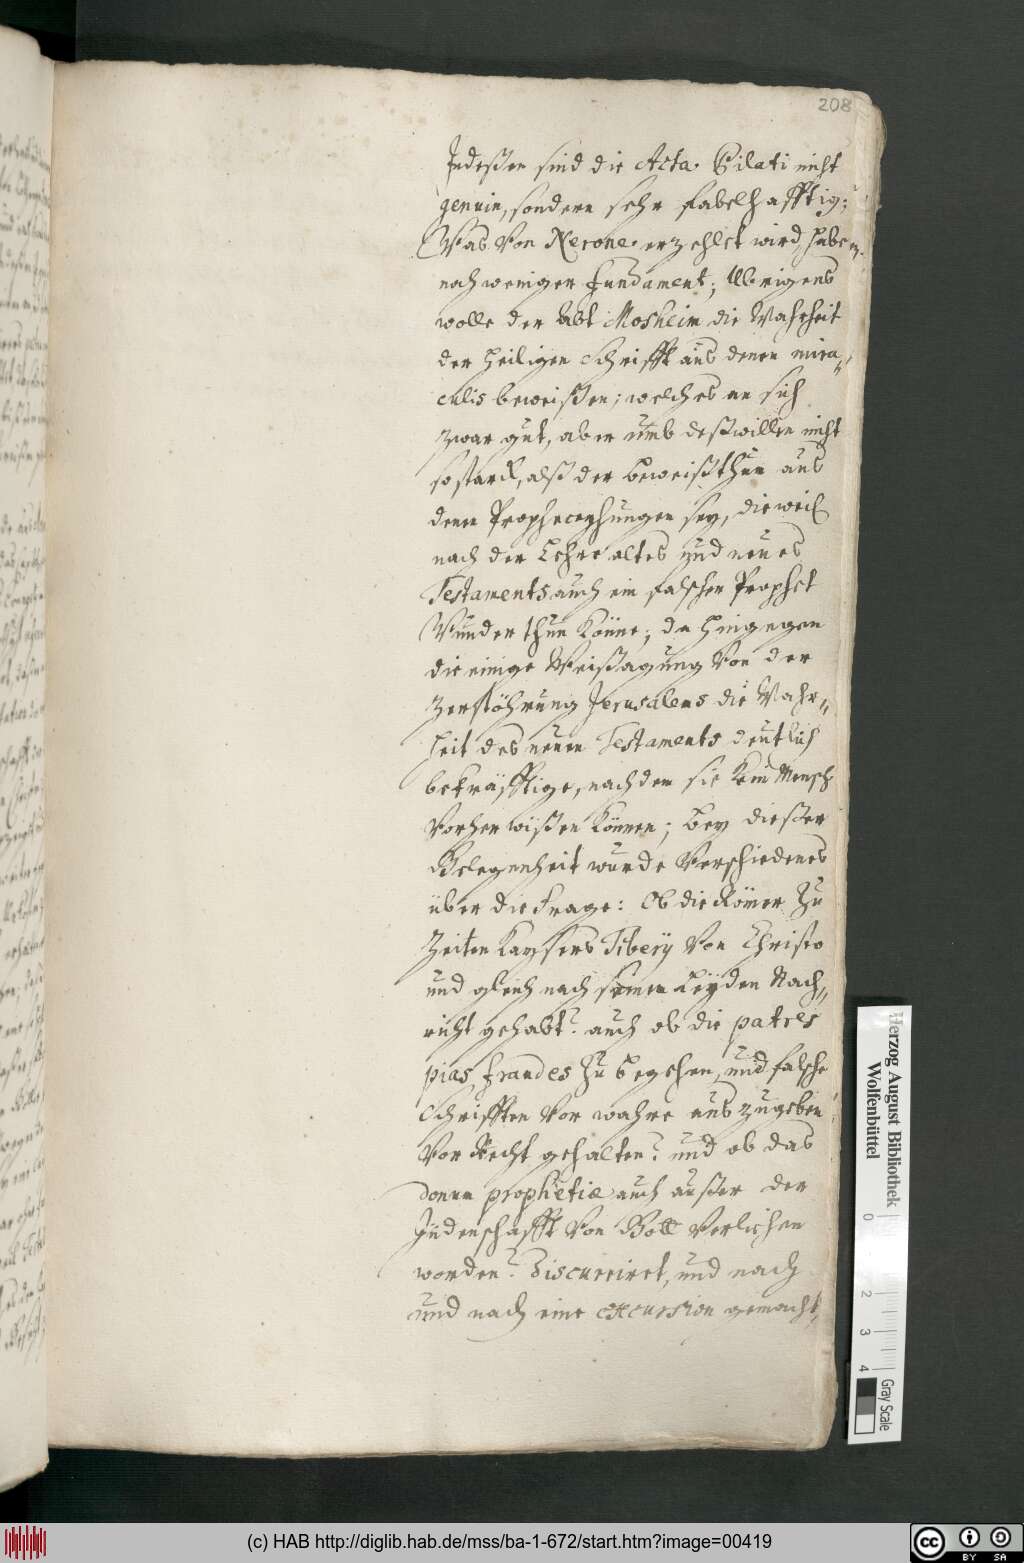 208
Indeßen sind die Acta Pilati nicht
genuin, sondern sehr fabelhafftig;
Was von Nerone erzehlet wird, habe
noch weniger fundament; Ubrigens
wolle der Abt Mosheim die Wahrheit
der heiligen Schrifft aus denen mira„
culis beweißen; welches an sich
zwar gut, aber umb deßwillen nicht
so starck, alß der Beweißthum aus
denen Propheceyhungen sey, dieweil
nach der Lehre altes und neues
Testaments auch ein falscher Prophet
Wunder thun könne; da hingegen
die einige Weißagung von der
Zerstöhrung Jerusalems die Wahr„
heit des neuen Testaments deutlich
bekräfftige, nachdem sie kein Mensch
vorher wißen können; bey dießer
Gelegenheit wurde verschiedenes
über die Frage: Ob die Römer zu
Zeiten Kaysers Tiberÿ von Christo
und gleich nach seinem Leyden Nach„
richt gehabt? auch ob die patres
pias fraudes zu begehen, und falsche
Schrifften vor wahre auszugeben
vor Recht gehalten? und ob das
donum prophetiæ auch außer der
Judenschafft von Gott verliehen
worden? discurriret, und nach
und nach eine excursion gemacht,
Herzog August Bibliothek
Wolfenbüttel
0
2
3
4
Gray Scale
(c) HAB http://diglib.hab.de/mss/ba-1-672/start.htm?image=00419
cc BY SA